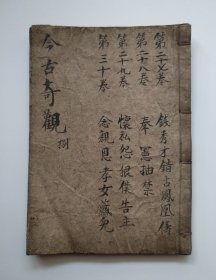 第二十七卷 錢秀才錯占鳳凰儔
第二十八卷 奉憲抽禁
第二十九卷 懷私怨狠僕告主
第三十卷 念親恩孝女藏兒
今古奇觀 捌